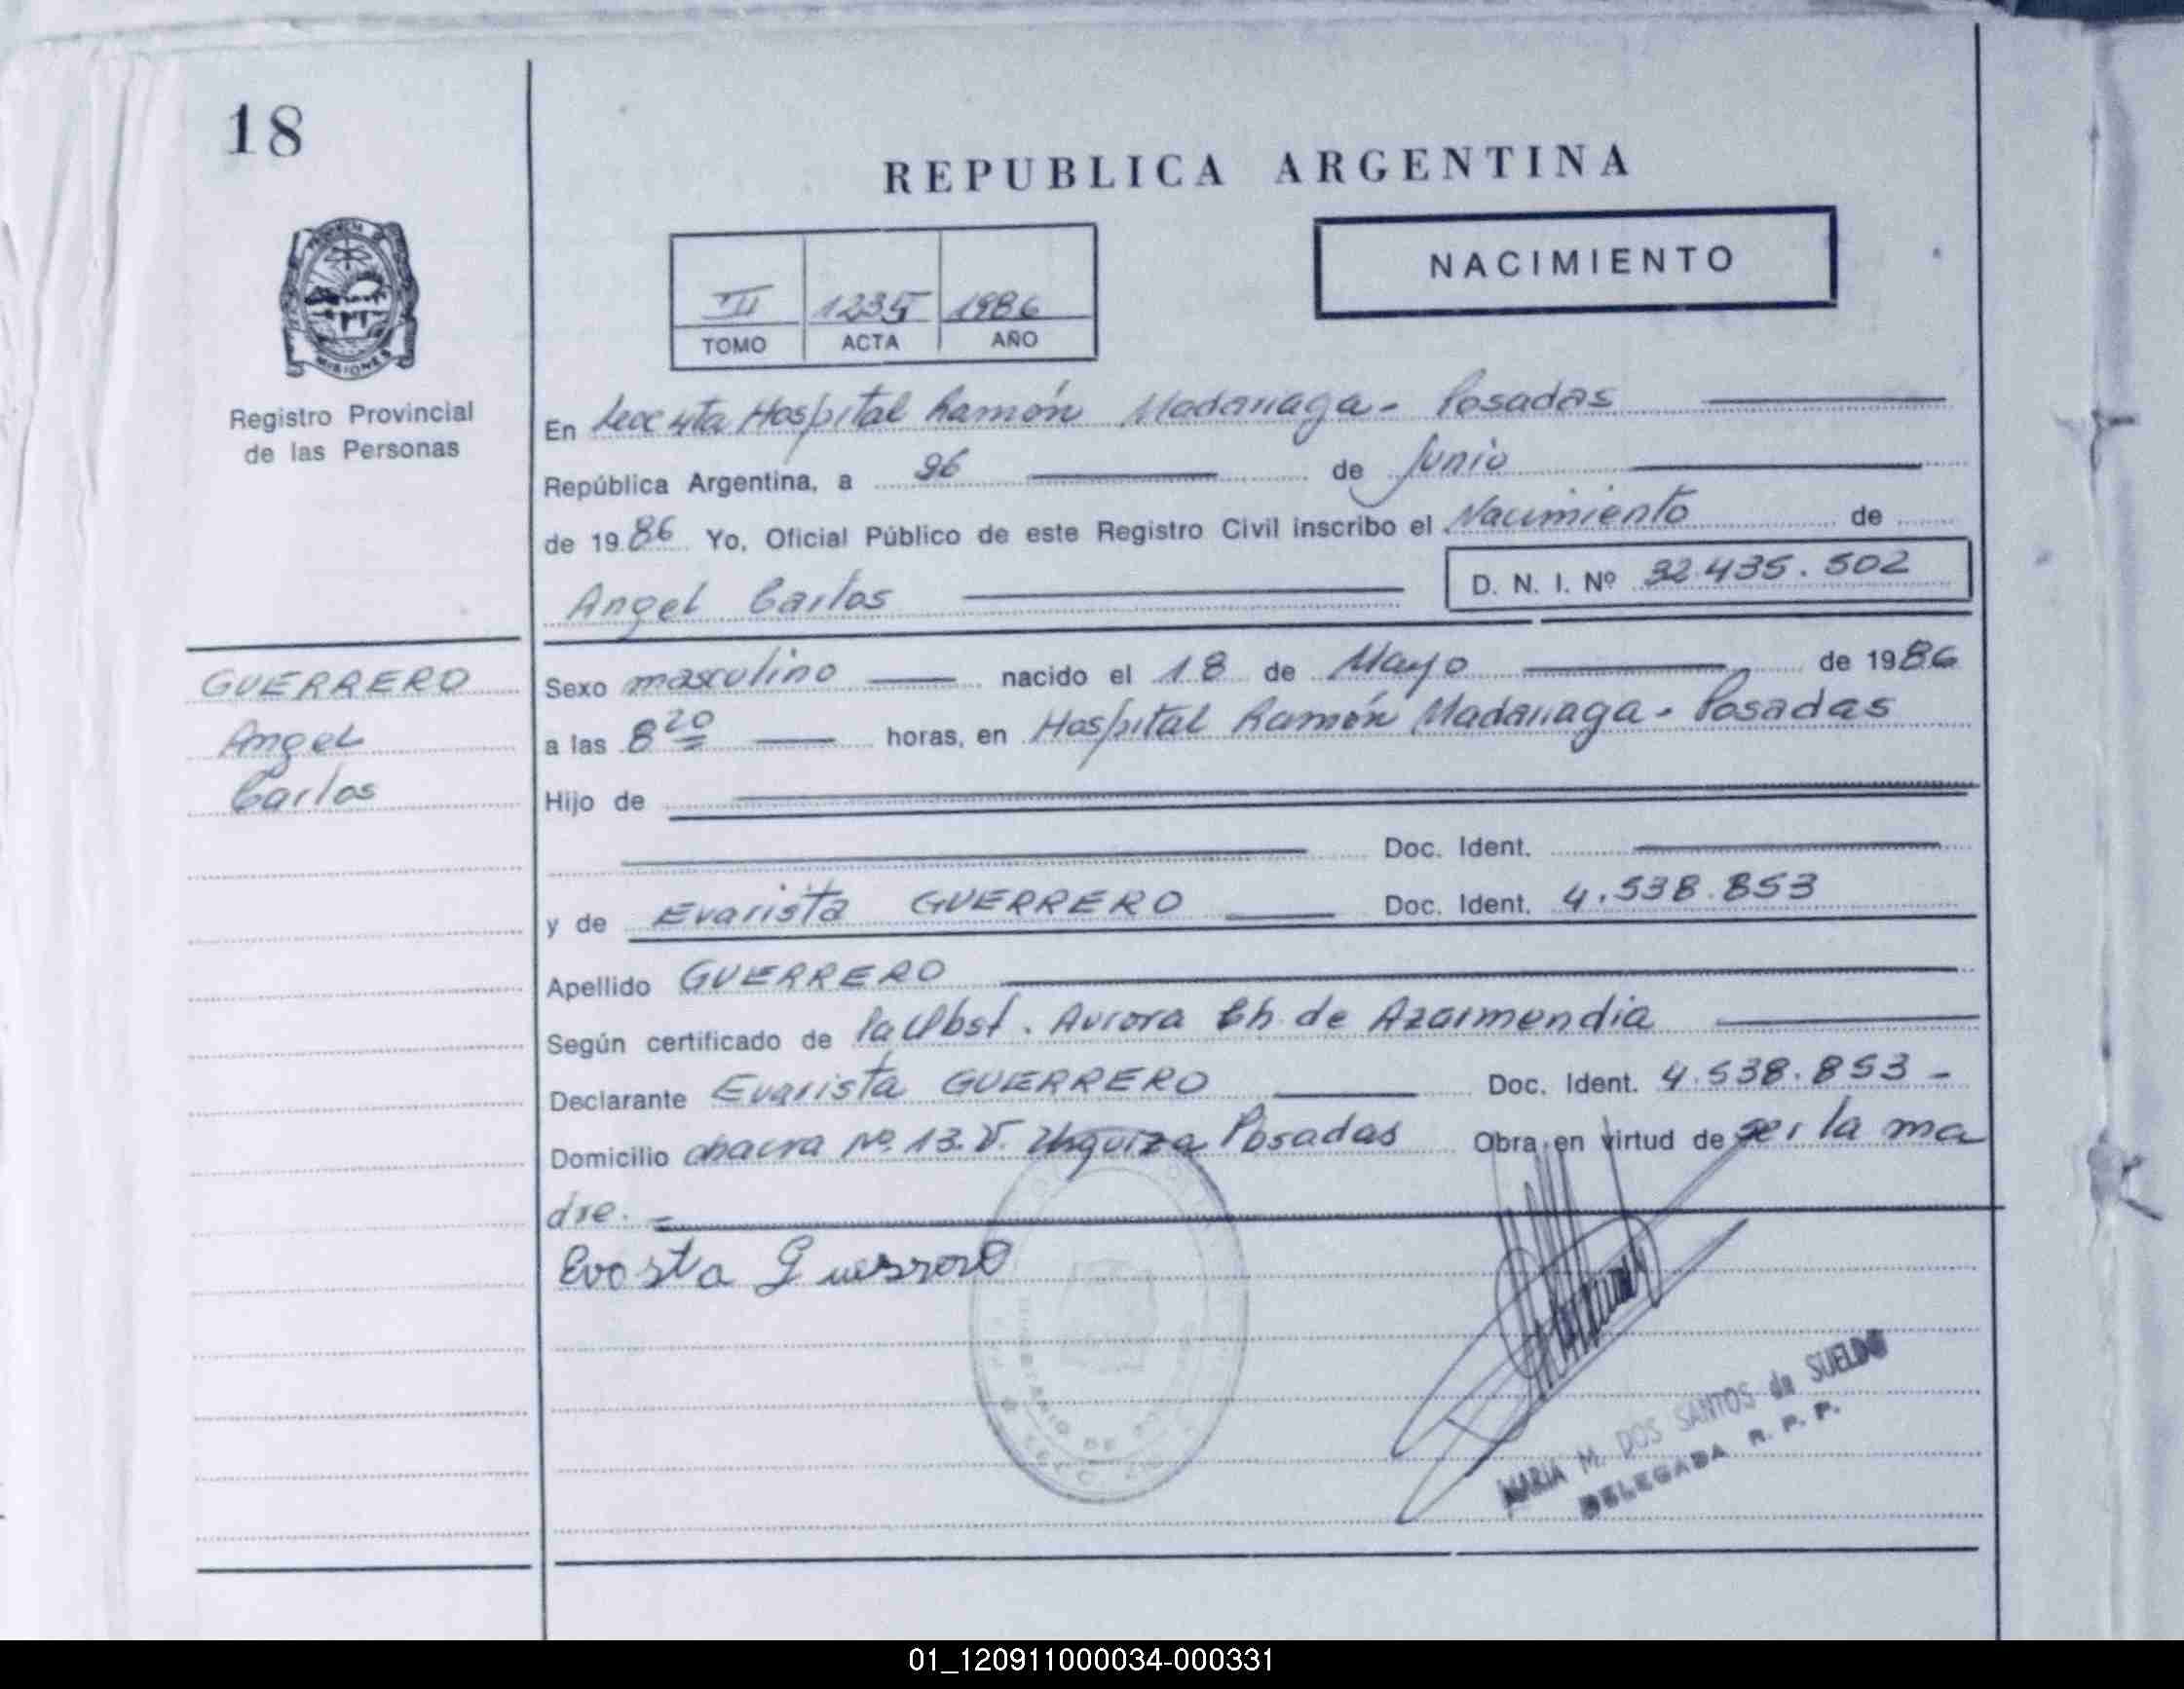 18
REPUBLICA ARGENTINA
NACIMIENTO
III 1235 1986
TOMO ACTA AÑO
PROVINCIA DE
MISIONES
Registro Provincial
de las Personas
En Secc 4ta Hospital Ramón Madariaga - Posadas
República Argentina, a 26 de Junio
de 1986 Yo, Oficial Público de este Registro Civil inscribo el Nacimiento de
Angel Carlos D. N. I. Nº 32.435.502
GUERRERO
Angel
Carlos
Sexo masculino nacido el 18 de Mayo de 1986
a las 8 20 horas, en Hospital Ramón Madariaga - Posadas
Hijo de
Doc. Ident.
y de Evarista GUERRERO Doc. Ident. 4.538.853
Apellido GUERRERO
Según certificado de la Obst. Aurora Ch. de Azarmendia
Declarante Evarista GUERRERO Doc. Ident. 4.538.853 -
Domicilio chacra Nº 13. V. Urquiza Posadas Obra en virtud de ser la ma
dre.
Evosta Guerrero
MARIA M. DOS SANTOS de SUELDO
DELEGADA R. P. P.
01_120911000034-000331